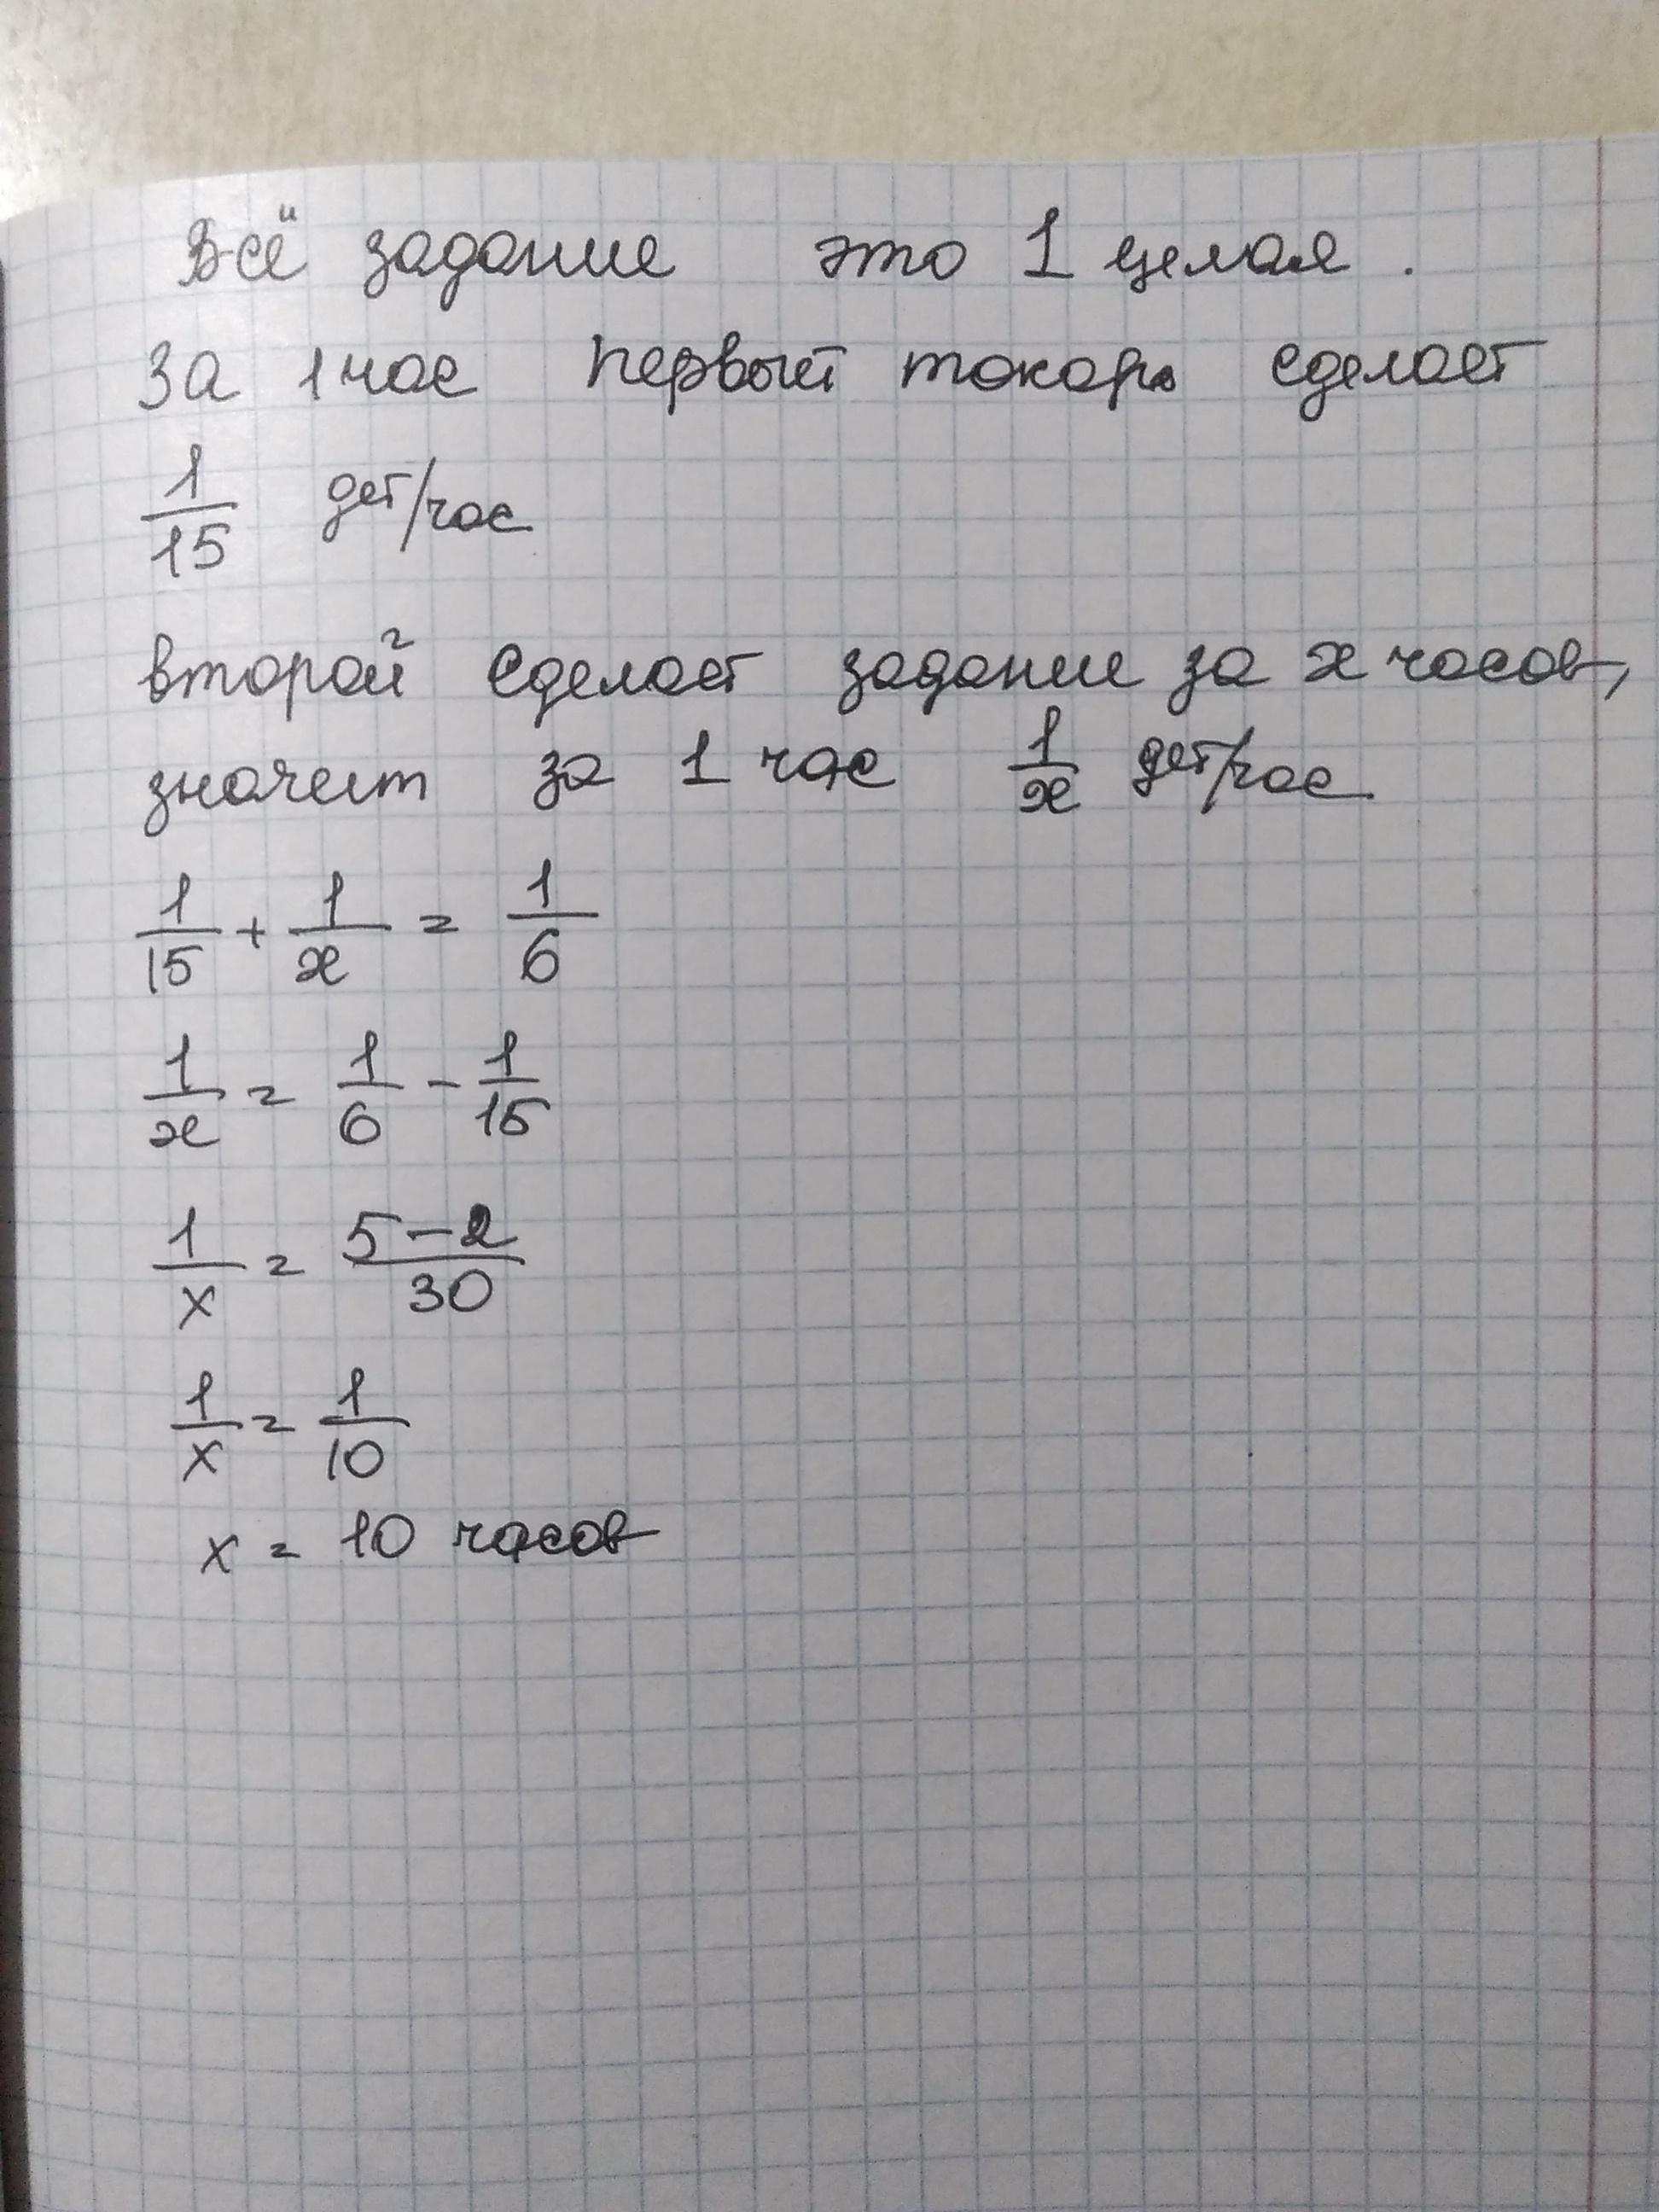 Всё задание это 1 целая.
За 1 час первый токарь сделает
1/15 дет/час
второй сделает задание за x часов,
значит за 1 час 1/x дет/час.
1/15 + 1/x = 1/6
1/x = 1/6 - 1/15
1/x = (5-2)/30
1/x = 1/10
x = 10 часов